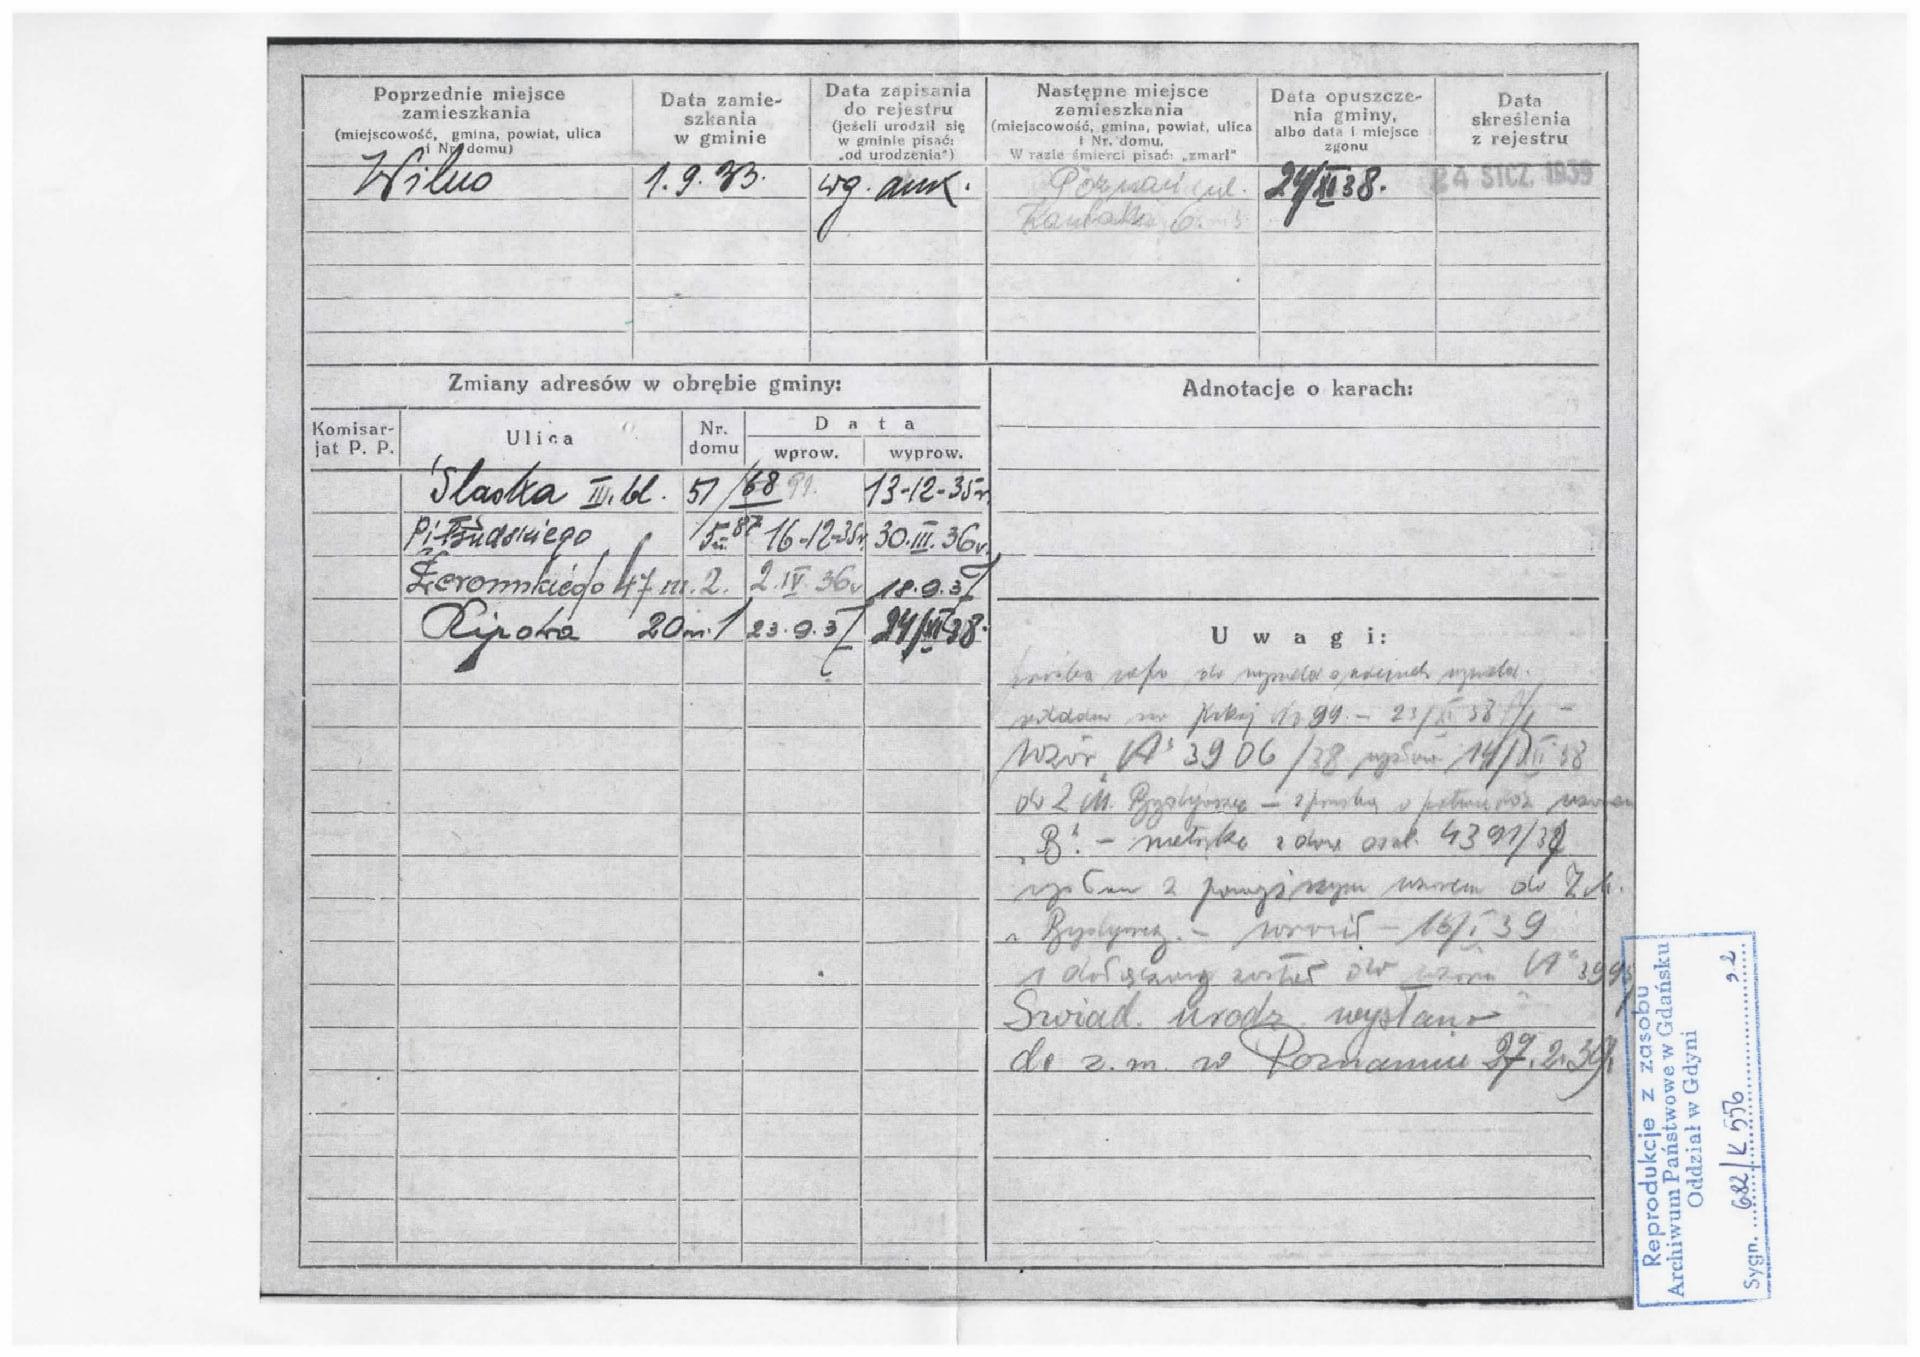 Poprzednie miejsce
zamieszkania
(miejscowość, gmina, powiat, ulica
i Nr. domu)
Data zamie-
szkania
w gminie
Data zapisania
do rejestru
(jeżeli urodził się
w gminie pisać:
„od urodzenia")
Następne miejsce
zamieszkania
(miejscowość, gmina, powiat, ulica
i Nr. domu.
W razie śmierci pisać: „zmarł"
Data opuszcze-
nia gminy,
albo data i miejsce
zgonu
Data
skreślenia
z rejestru
Wilno 1.9.33. wg. ank. Poznań ul. 24/XI 38. 24 STCZ. 1939
6
Zmiany adresów w obrębie gminy:
Komisar-
jat P. P.
Ulica
Nr.
domu
Data
wprow. wyprow.
Śląska III. bl. 51/68 99. 13-12-35r
Piłsudskiego 16-12-35r 30.III.36r.
Żeromskiego 47 m. 2. 2.IV.36r 18.9.37
20 m. 1 23.9.37 24/XI 38.
Adnotacje o karach:
Uwagi:
99. – 23/XI 38
wzór „A" 3906/38 14/XII 38
do Z M. –
„B". – metryka z dow. osob. 4391/38
z powyższym wzorem do Z. M.
– wrócił – 16/I 39
i dołączony został do wzoru „A"
Świad. urodz. wysłano
do z. m. w Poznaniu 27.2.39r
Reprodukcje z zasobu
Archiwum Państwowe w Gdańsku
Oddział w Gdyni
Sygn. 682/K 556 s. 2